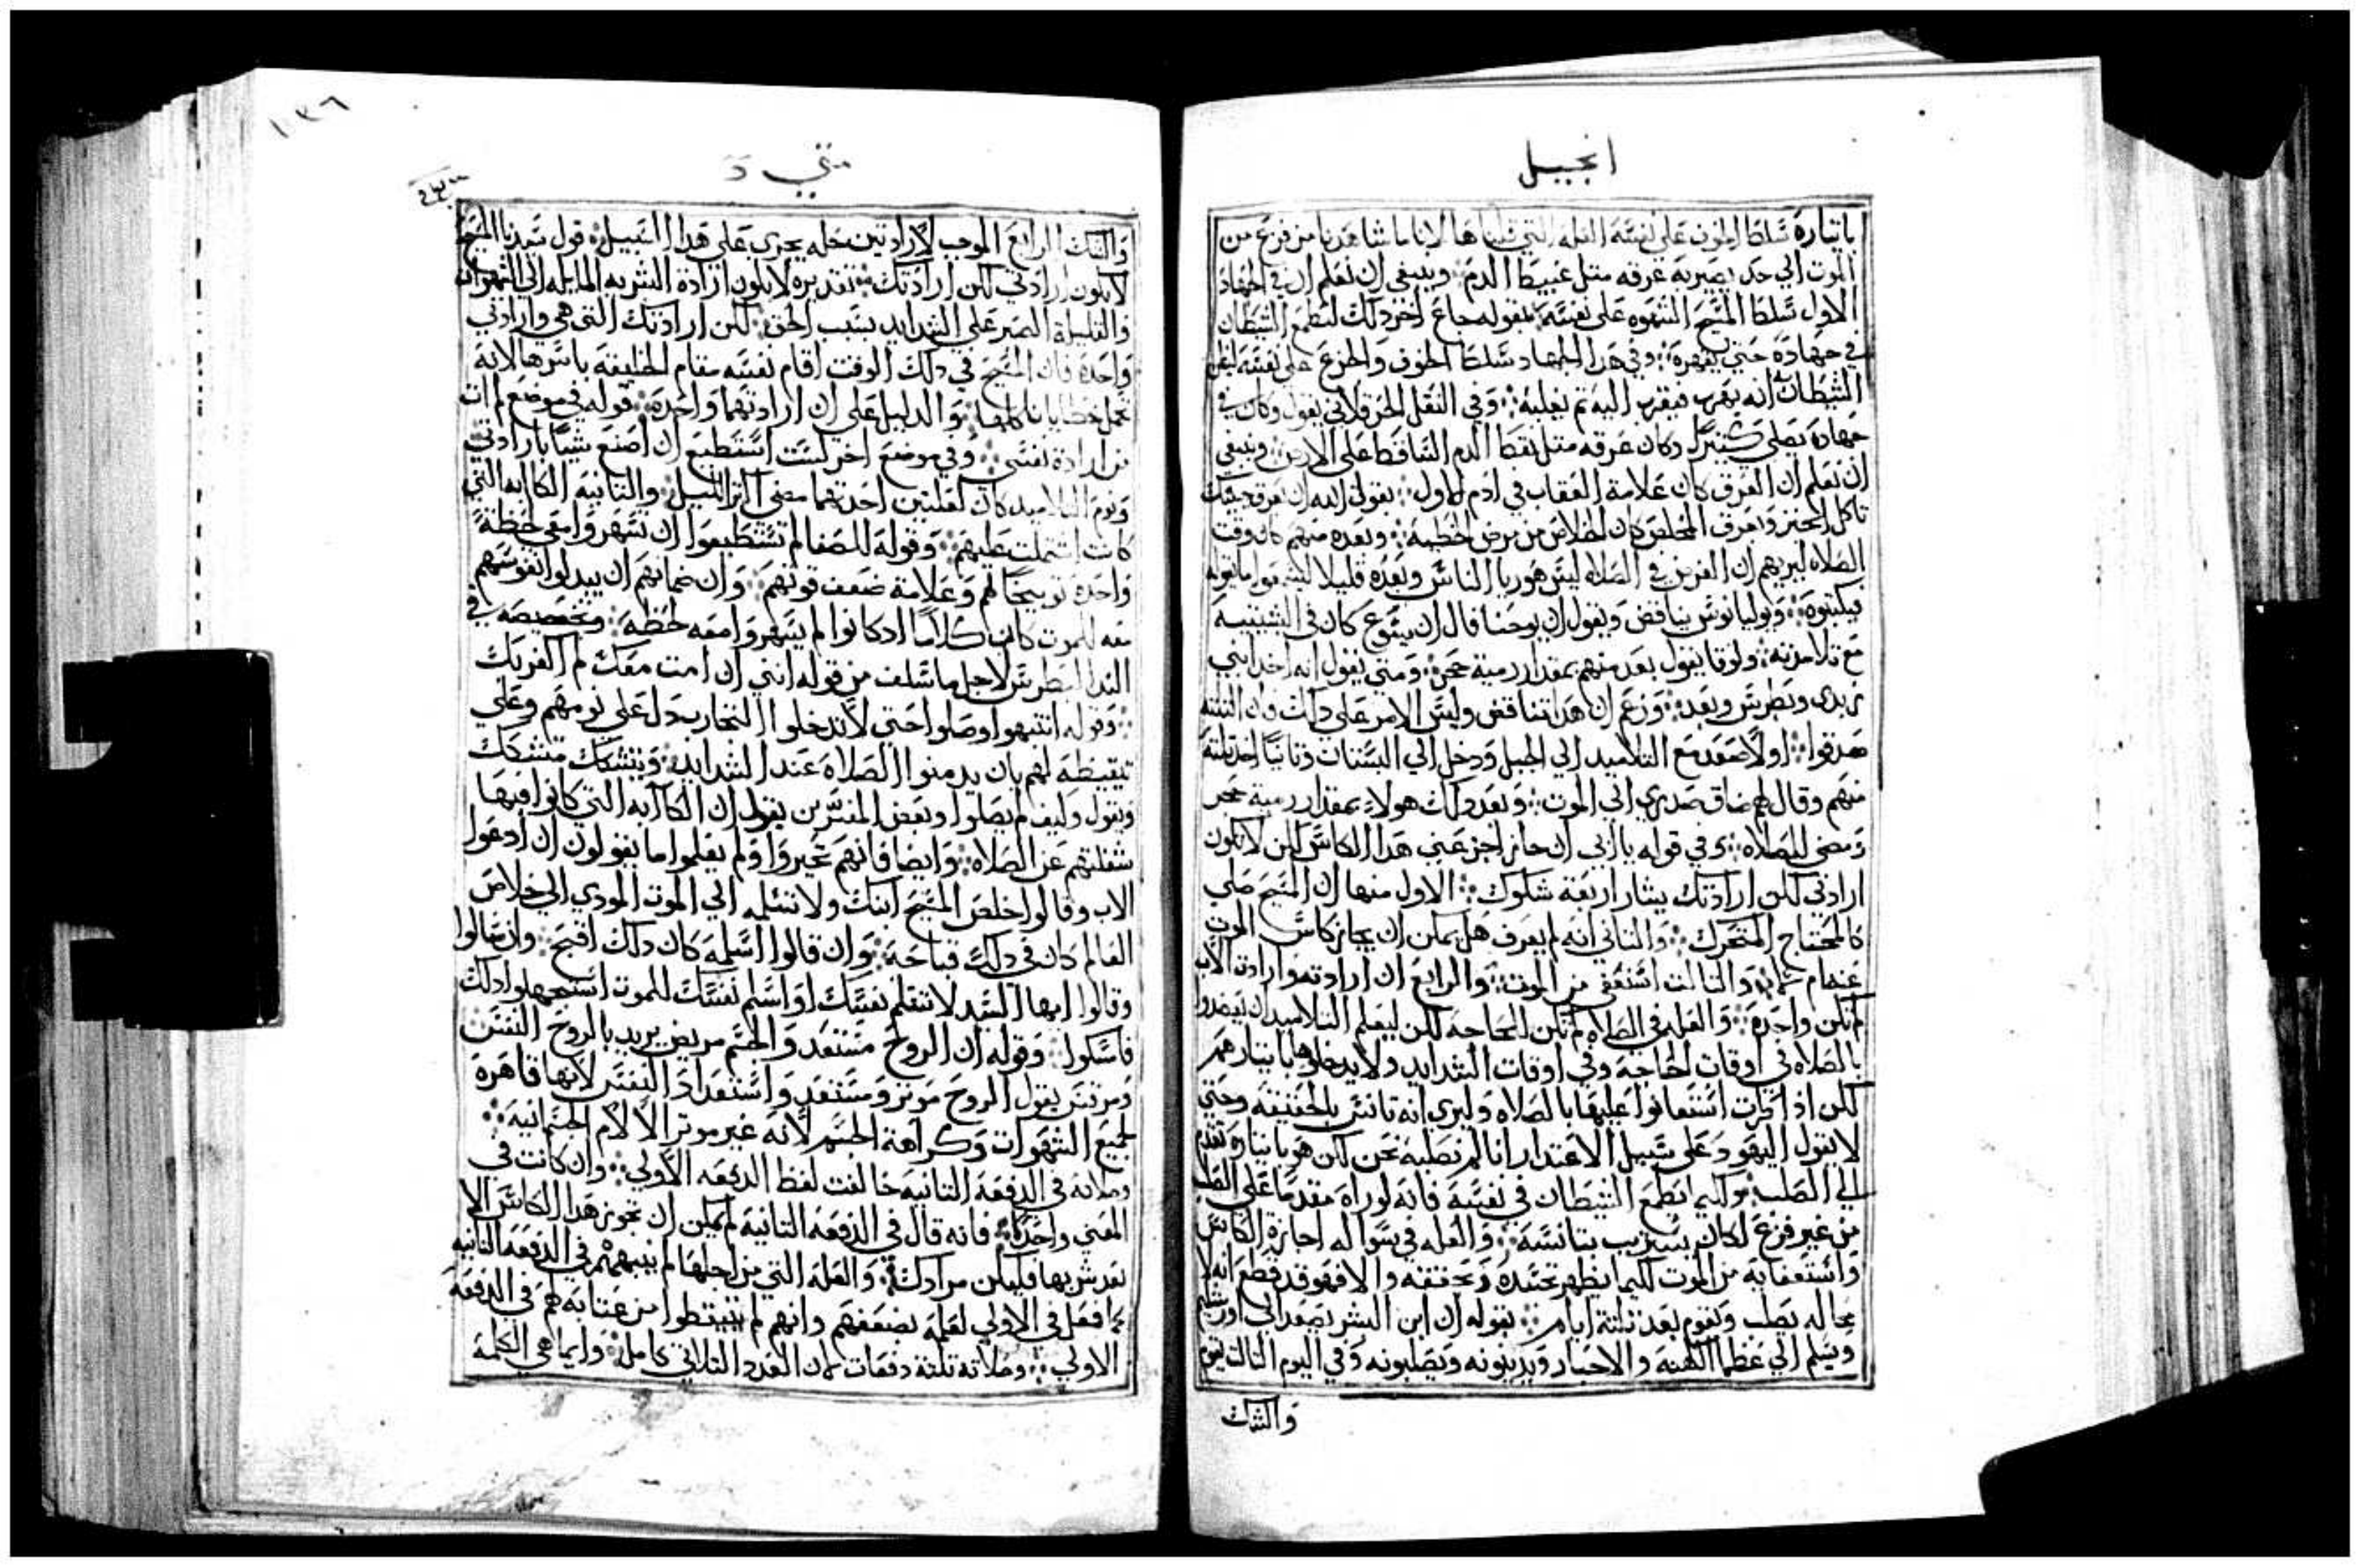 انجيل
باتياره سلط الخوف على نفسه العله التي قلناها لانا ما شاهدنا من فزع من
الموت الي حد يصير به عرقه متل عبيط الدم ؛ وينبغي ان نعلم ان في الجهاد
الاول سلط المسيح الشهوه على نفسه بقوله جاع اخر دلك ليطمع الشيطان
في جهاده حتى يقهره ؛ وفي هدا الجهاد سلط الخوف والجزع على نفسه ليظن
الشيطان انه يهرب فيقرب اليه تم يغلبه ؛ وفي النقل الحرقلاني يقول وكان في
جهاده يصلي كتيرا وكان عرقه متل نقط الدم الساقط على الارض ؛ وينبغي
ان نعلم ان العرق كان علامة العقاب في ادم الاول ؛ بقول الله ان بعرق جبينك
تاكل الخبز وبعرق المخلص كان الخلاص من مرض الخطيه ؛ وبعده منهم كان وقت
الصلاه ليريهم ان الغرض في الصلاه ليس هو ريا الناس وبعده قليلا ليسمعوا ما يقوله
فيكتبوه ؛ ويوليانوس يناقض ويقول ان يوحنا قال ان يسوع كان في
مع تلاميده ؛ ولوقا يقول بعد منهم بمقدار رمية حجر ؛ ومتي يقول انه اخد ابني
زبدي وبطرس وبعد ؛ وزعم ان هدا تناقض وليس الامر على دلك فان التلته
صدقوا ؛ اولا صعد مع التلاميد الي الجبل ودخل الي البستان وتانيا اخد تلته
منهم وقال لهم ضاق صدري الي الموت ؛ وبعد دلك هولاء بمقدار رمية حجر
ومضي للصلاه ؛ وفي قوله يا ابي ان جاز اجز عني هدا الكاس لكن لا يكون
ارادتي لكن ارادتك يتار اربعة شكوك ؛ الاول منها ان المسيح صلي
كالمحتاج المتحرك ؛ والتاني انه لم يعرف هل يمكن ان يجاز كاس الموت
عنه ام لا والتالت استعفى من الموت ؛ والرابع ان ارادته وارادة الاب
لم تكن واحدة ؛ والعله في الصلاه لم تكن للحاجه لكن ليعلم التلاميد ان يقصدوا
بالصلاه في اوقات الحاجه وفي اوقات الشدايد ولا يدخلوها باتيارهم
لكن ادا جرت استعانوا عليها بالصلاه وليري انه تانس بالحقيقه وحتي
لا يقول اليهود على سبيل الاعتدار انا لم نصلبه نحن لكن هو باتياره تقدم
الي الصلب ؛ ولكيما يطمع الشيطان في نفسه فانه لو راه مقدما على الصلب
من غير فزع لكان يستريب بتانسه ؛ والعله في سواله اجازة الكاس
واستعفايه من الموت لكيما يظهر تجسده وتحققه والا فهو قد قطع انه لا
محاله يصلب ويقوم بعد تلتة ايام ؛ بقوله ان ابن البشر يصعد الي اورشليم
ويسلم الي عظما الكهنه والاحبار ويدينونه ويصلبونه وفي اليوم التالت يقوم
والشك
١٠٣٦
متي
والشك الرابع الموجب لارادتين حله يجري على هدا السبيل ؛ قول سيدنا المسيح
لا يكون ارادتي لكن ارادتك ؛ تقديره لا يكون ارادة البشريه المايله الي الشهوات
والقليلة الصبر على الشدايد بسبب الحق ؛ لكن ارادتك التي هي وارادتي
واحدة فان المسيح في دلك الوقت اقام نفسه مقام الخليقه باسرها لانه
تحمل خطايانا كلها ؛ والدليل على ان ارادتهما واحدة ؛ قوله في موضع لم ات
من ارادة نفسي ؛ وفي موضع اخر لست استطيع ان اصنع شيا بارادتي
ونوم التلاميد كان لعلتين احدتهما مضي اكتر الليل ؛ والتانيه الكاابه التي
كانت اشتملت عليهم ؛ وقوله للصفا لم تستطيعوا ان تسهروا معي لحظة
واحدة توبيخا لهم وعلامة ضعف قوتهم ؛ وان ضمانهم ان يبدلوا نفوسهم
معه للموت كان كلاما اد كانوا لم يسهروا معه لحظه ؛ وتخصيصه في
الندا لبطرس لاجل ما سلف من قوله انني ان امت معك لم اكفر بك
؛ وقوله انتبهوا وصلوا حتي لا تدخلوا التجارب دل على نومهم وعلي
تيقيظه لهم بان يدمنوا الصلاه عند الشدايد ؛ ويتشكك متشكك
ويقول وكيف لم يصلوا وبعض المفسرين يقول ان الكاابه التي كانوا فيها
شغلتهم عن الصلاه ؛ وايضا فانهم تحيروا ولم يعلموا ما يقولون ان ادعوا
الاب وقالوا خلص المسيح ابنك ولا تسلمه الي الموت المودي الي خلاص
العالم كان في دلك قباحه ؛ وان قالوا اسلمه كان دلك اقبح ؛ وان سالوا
وقالوا ايها السيد لا تسلم نفسك او اسلم نفسك للموت استجهلوا دلك
فامسكوا ؛ وقوله ان الروح مستعد والجسم مريض يريد بالروح النفس
ومرقس يقول الروح موتر ومستعد واستعداد النفس لانها قاهرة
لجميع الشهوات وكراهة الجسم لانه غير موتر الالام الجسمانيه ؛
وصلاته في الدفعة التانيه خالفت لفظ الدفعه الاولي ؛ وان كانت في
المعني واحدا فانه قال في الدفعه التانية لم يمكن ان تجوز هدا الكاس الا
بعد شربها فليكن مرادك ؛ والعله التي من اجلها لم ينبههم في الدفعه التانيه
كما فعل في الاولي لعلمه بضعفهم وانهم لم يتيقظوا من عتابه لهم في الدفعة
الاولي ؛ وصلاته تلتة دفعات لان العدد التلاتي كامل ؛ وايما هي الكلمة